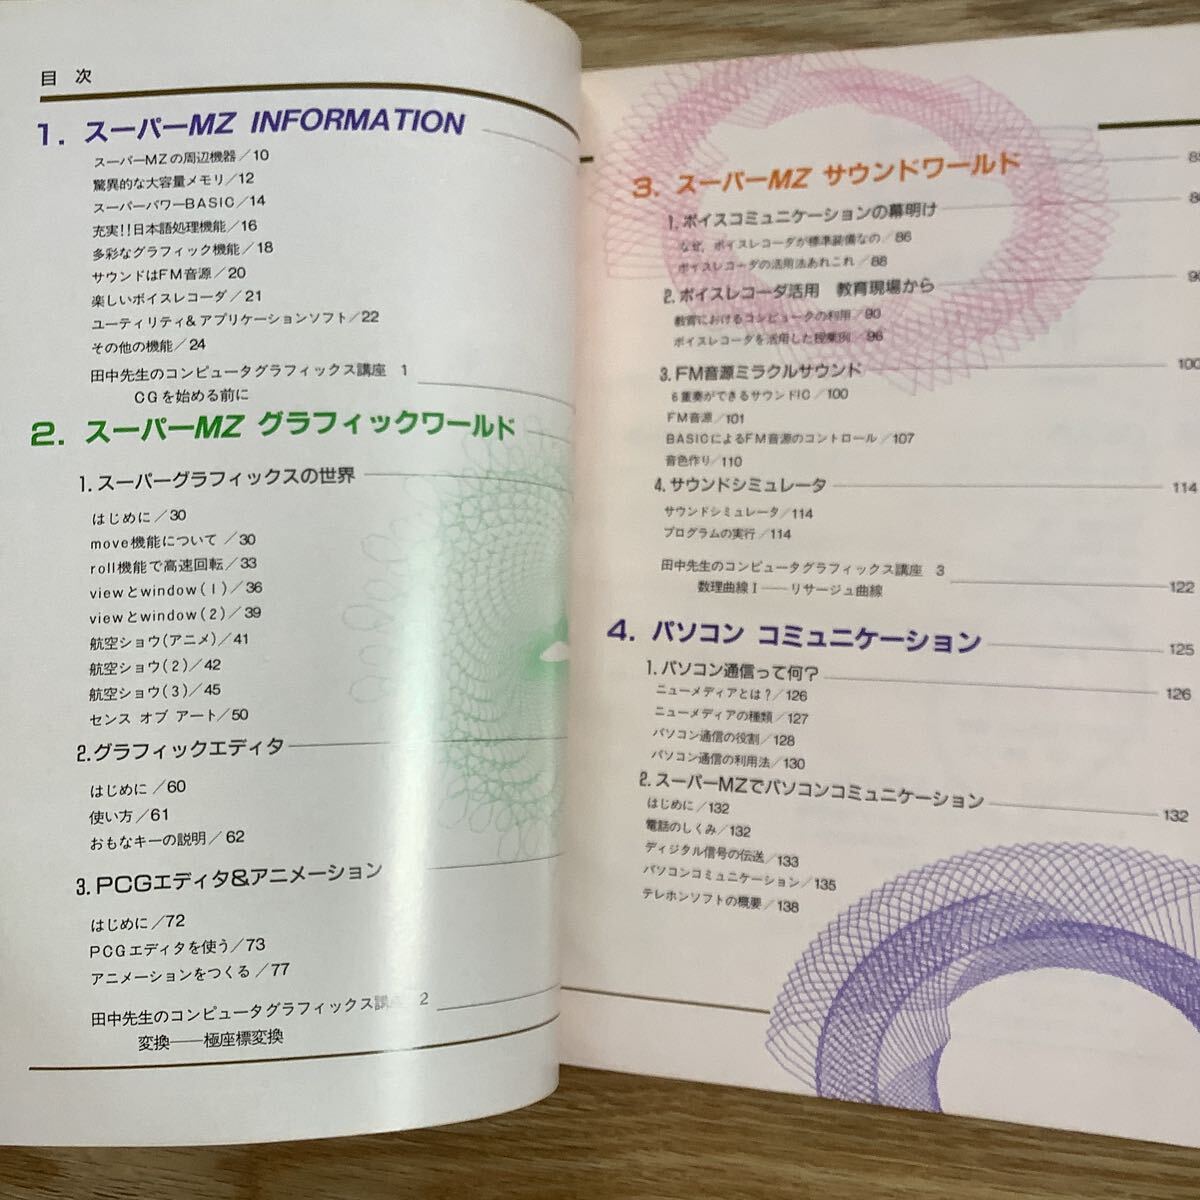 目 次
1. スーパーMZ INFORMATION
スーパーMZの周辺機器/10
驚異的な大容量メモリ/12
スーパーパワーBASIC/14
充実!!日本語処理機能/16
多彩なグラフィック機能/18
サウンドはFM音源/20
楽しいボイスレコーダ/21
ユーティリティ&アプリケーションソフト/22
その他の機能/24
田中先生のコンピュータグラフィックス講座 1
CGを始める前に
2. スーパーMZ グラフィックワールド
1.スーパーグラフィックスの世界
はじめに/30
move機能について/30
roll機能で高速回転/33
viewとwindow(1)/36
viewとwindow(2)/39
航空ショウ(アニメ)/41
航空ショウ(2)/42
航空ショウ(3)/45
センス オブ アート/50
2.グラフィックエディタ
はじめに/60
使い方/61
おもなキーの説明/62
3.PCGエディタ&アニメーション
はじめに/72
PCGエディタを使う/73
アニメーションをつくる/77
田中先生のコンピュータグラフィックス講座 2
変換——極座標変換
3. スーパーMZ サウンドワールド
1.ボイスコミュニケーションの幕明け
なぜ,ボイスレコーダが標準装備なの/86
ボイスレコーダの活用法あれこれ/88
2.ボイスレコーダ活用 教育現場から
教育におけるコンピュータの利用/90
ボイスレコーダを活用した授業例/96
3.FM音源ミラクルサウンド 100
6重奏ができるサウンドIC/100
FM音源/101
BASICによるFM音源のコントロール/107
音色作り/110
4.サウンドシミュレータ 114
サウンドシミュレータ/114
プログラムの実行/114
田中先生のコンピュータグラフィックス講座 3
数理曲線I——リサージュ曲線 122
4. パソコン コミュニケーション 125
1.パソコン通信って何? 126
ニューメディアとは?/126
ニューメディアの種類/127
パソコン通信の役割/128
パソコン通信の利用法/130
2.スーパーMZでパソコンコミュニケーション 132
はじめに/132
電話のしくみ/132
ディジタル信号の伝送/133
パソコンコミュニケーション/135
テレホンソフトの概要/138